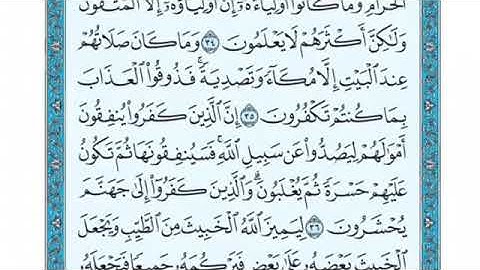 الْحَرَامِ وَمَا كَانُوا أَوْلِيَاءَهُ إِنْ أَوْلِيَاؤُهُ إِلَّا الْمُتَّقُونَ
وَلَٰكِنَّ أَكْثَرَهُمْ لَا يَعْلَمُونَ ٣٤ وَمَا كَانَ صَلَاتُهُمْ
عِندَ الْبَيْتِ إِلَّا مُكَاءً وَتَصْدِيَةً ۚ فَذُوقُوا الْعَذَابَ
بِمَا كُنتُمْ تَكْفُرُونَ ٣٥ إِنَّ الَّذِينَ كَفَرُوا يُنفِقُونَ
أَمْوَٰلَهُمْ لِيَصُدُّوا عَن سَبِيلِ اللَّهِ ۚ فَسَيُنفِقُونَهَا ثُمَّ تَكُونُ
عَلَيْهِمْ حَسْرَةً ثُمَّ يُغْلَبُونَ ۗ وَالَّذِينَ كَفَرُوا إِلَىٰ جَهَنَّمَ
يُحْشَرُونَ ٣٦ لِيَمِيزَ اللَّهُ الْخَبِيثَ مِنَ الطَّيِّبِ وَيَجْعَلَ
الْخَبِيثَ بَعْضَهُ عَلَىٰ بَعْضٍ فَيَرْكُمَهُ جَمِيعًا فَيَجْعَلَهُ